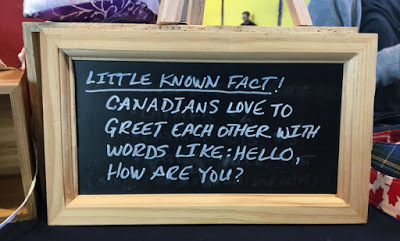 LITTLE KNOWN FACT!
CANADIANS LOVE TO
GREET EACH OTHER WITH
WORDS LIKE: HELLO,
HOW ARE YOU?